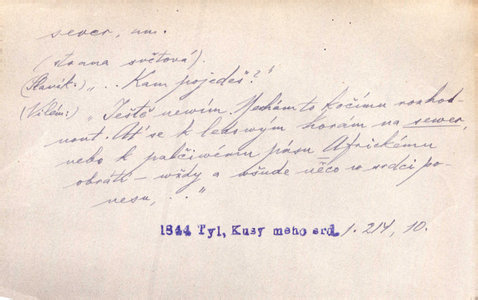 sewer, um.
(strana světová).
(Slavík:) „... Kam pojedeš?“
(Vilém:) „Ještě newím. Nechám to kočímu rozhod-
nout. Ať se k ledowým horám na sewer,
nebo k palčiwému pásu Afrického
obrátí – wždy a wšude něco w srdci po-
nesu, ...“
1844 Tyl, Kusy meho srd. 1. 214, 10.